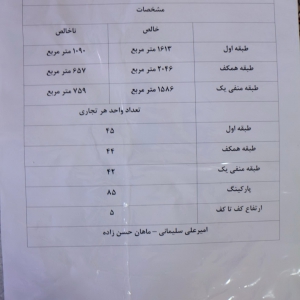 مشخصات
خالص ناخالص
طبقه اول ۱۶۱۳ متر مربع ۱۰۹۰ متر مربع
طبقه همکف ۲۰۴۶ متر مربع ۶۵۷ متر مربع
طبقه منفی یک ۱۵۸۶ متر مربع ۷۵۹ متر مربع
تعداد واحد هر تجاری
طبقه اول ۴۵
طبقه همکف ۴۴
طبقه منفی یک ۴۲
پارکینگ ۸۵
ارتفاع کف تا کف ۵
امیرعلی سلیمانی – ماهان حسن زاده